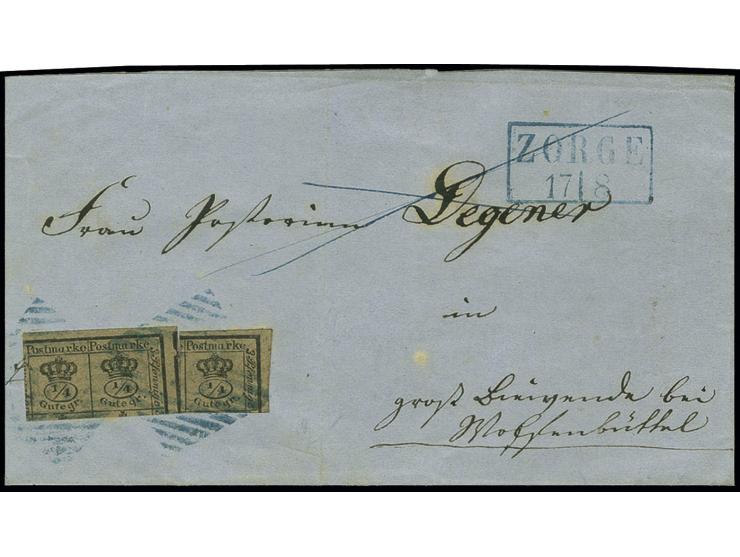 ZORGE
17 8
Frau Pastorinn Degener
in
groß Biewende bei
Wolfenbüttel
Postmarke Postmarke Postmarke
1/4 1/4 1/4
Gutegr. Gutegr. Gutegr.